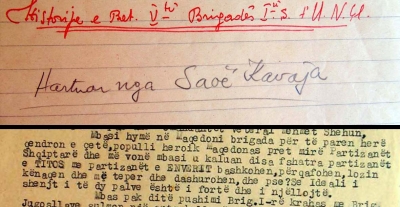 Historije e Bat. Vtë Brigadës Iië S. t'U. N. Çl.
Hartuar nga Saoë Kavaja
Mehmet Shehun,
Mbasi hymë në Maqedoni brigada për të paren herë
qendron e çetë,populli heroik Maqedonas pret mirë Partizanët
Shqiptarë dhe më vonë mbasi u kaluan disa fshatra partizanët
e TITOS me partizanët e ENVERIT bashkohen,përqafohen,lozin
këndojnë dhe më teper dashurohen,dhe pse?Se Ideali i
shenjtë i të dy palve është i fortë dhe i njëllojtë.
Mbas pak ditë pushimi Brig.I-rë krahas me Brig.
Jugosllave